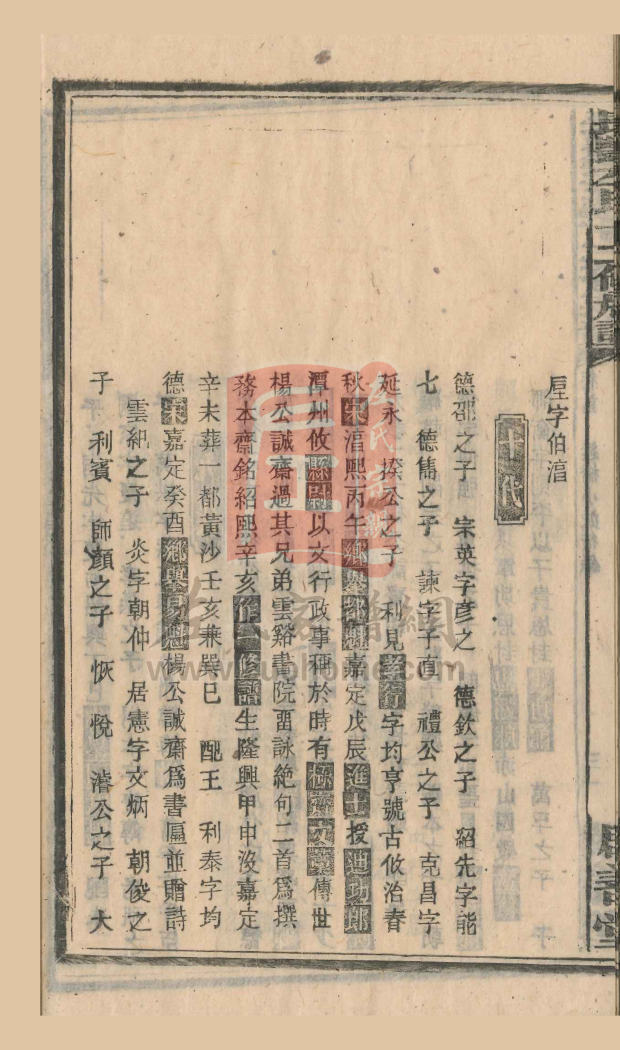 垕字伯湻
十一代
德邵之子 宋英字彥之 德欽之子 紹先字能
七 德雋之子 諫字子直 禮公之子 克昌字
延永 揆公之子 利見孝行字均亨號古攸治春
秋宋湻熙丙午鄉舉鄉魁嘉定戊辰進士授迪功郎
潭州攸縣尉以文行政事稱於時有極齋文藁傳世
楊公誠齋過其兄弟雲谿書院畱詠絶句二首爲撰
務本齋銘紹熙辛亥作一修譜生隆興甲申沒嘉定
辛未葬一都黃沙壬亥兼巽巳 配王 利泰字均
德宋嘉定癸酉鄉舉易魁楊公誠齋爲書匾並贈詩
雲紀之子 炎字朝仲 居憲字文炳 朝俊之
子 利賓 師顔之子 恢 悅 濬公之子 大
www.zuohome.com